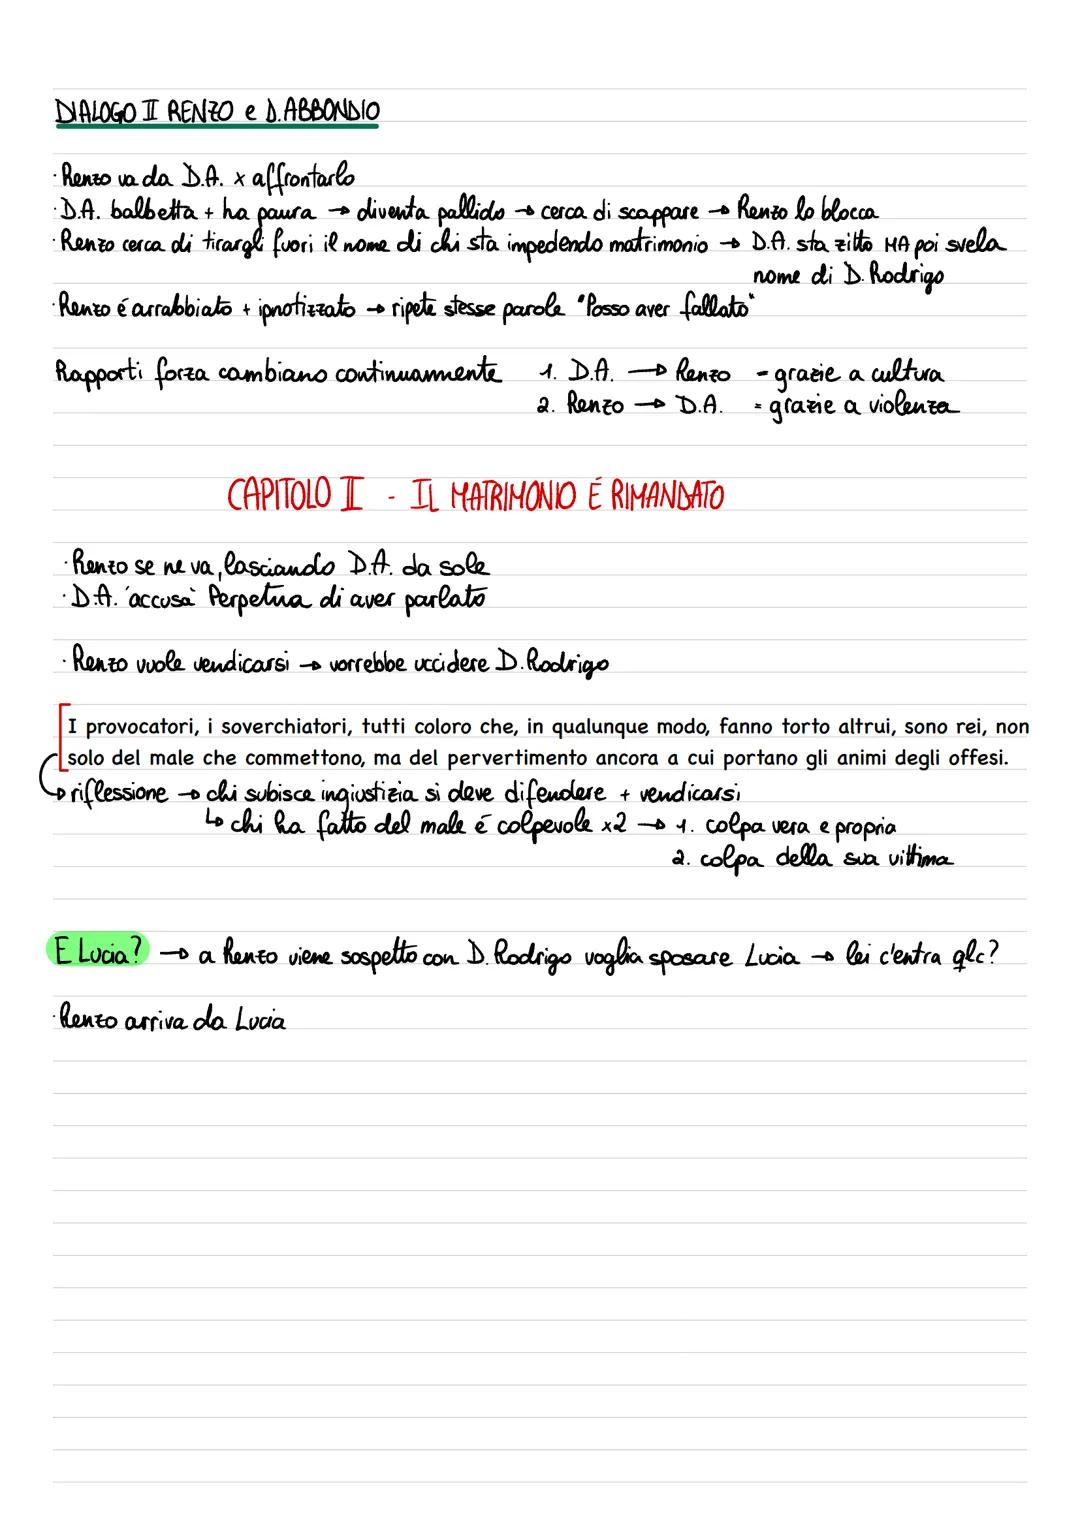 DIALOGO II RENZO e D. ABBONDIO
· Renzo va da D.A. x affrontarlo
· D.A. balbetta + ha paura → diventa pallido → cerca di scappare → Renzo lo blocca
· Renzo cerca di tirargli fuori il nome di chi sta impedendo matrimonio → D.A. sta zitto MA poi svela
nome di D. Rodrigo
· Renzo é arrabbiato + ipnotizzato → ripete stesse parole "Posso aver fallato"
Rapporti forza cambiano continuamente 1. D.A. → Renzo - grazie a cultura
2. Renzo → D.A. - grazie a violenza
CAPITOLO II - IL MATRIMONIO É RIMANDATO
· Renzo se ne va, lasciando D.A. da sole
· D.A. 'accusa' Perpetua di aver parlato
· Renzo vuole vendicarsi → vorrebbe uccidere D. Rodrigo
I provocatori, i soverchiatori, tutti coloro che, in qualunque modo, fanno torto altrui, sono rei, non
solo del male che commettono, ma del pervertimento ancora a cui portano gli animi degli offesi.
↳ riflessione → chi subisce ingiustizia si deve difendere + vendicarsi
↳ chi ha fatto del male é colpevole x2 → 1. colpa vera e propria
2. colpa della sua vittima
E Lucia? → a Renzo viene sospetto con D. Rodrigo voglia sposare Lucia → lei c'entra qlc?
· Renzo arriva da Lucia